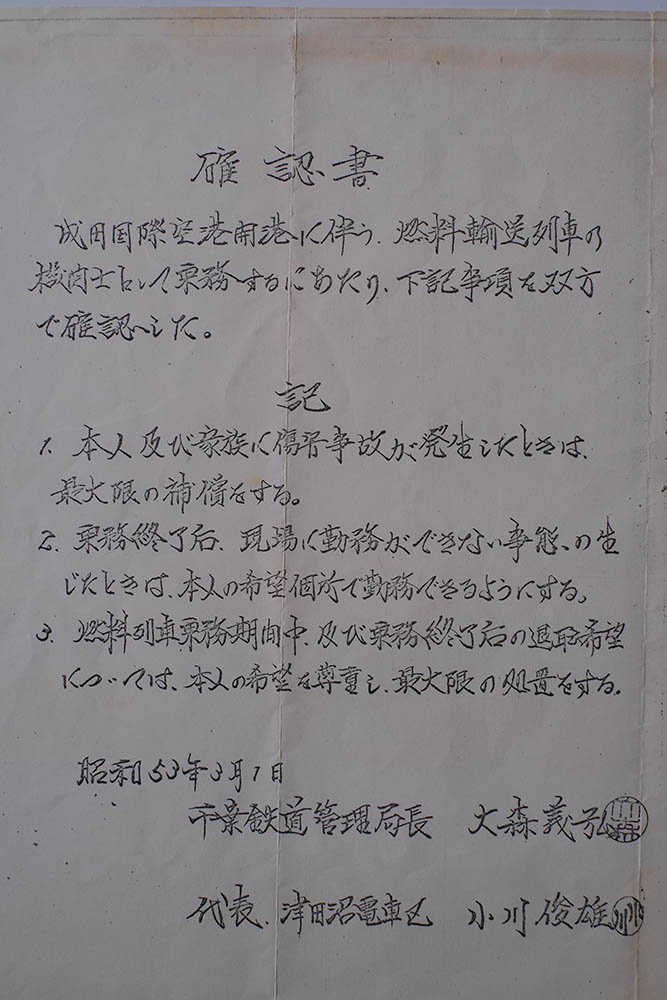 確認書
成田国際空港開港に伴う、燃料輸送列車の
機関士として乗務するにあたり、下記事項を双方
で確認した。
記
1. 本人及び家族に傷害事故が発生したときは、
最大限の補償をする。
2. 乗務終了后、現場に勤務ができない事態の生
じたときは、本人の希望個所で勤務できるようにする。
3. 燃料列車乗務期間中、及び乗務終了后の退職希望
については、本人の希望を尊重し、最大限の処置をする。
昭和53年3月1日
千葉鉄道管理局長 大森義弘
代表、津田沼電車区 小川俊雄